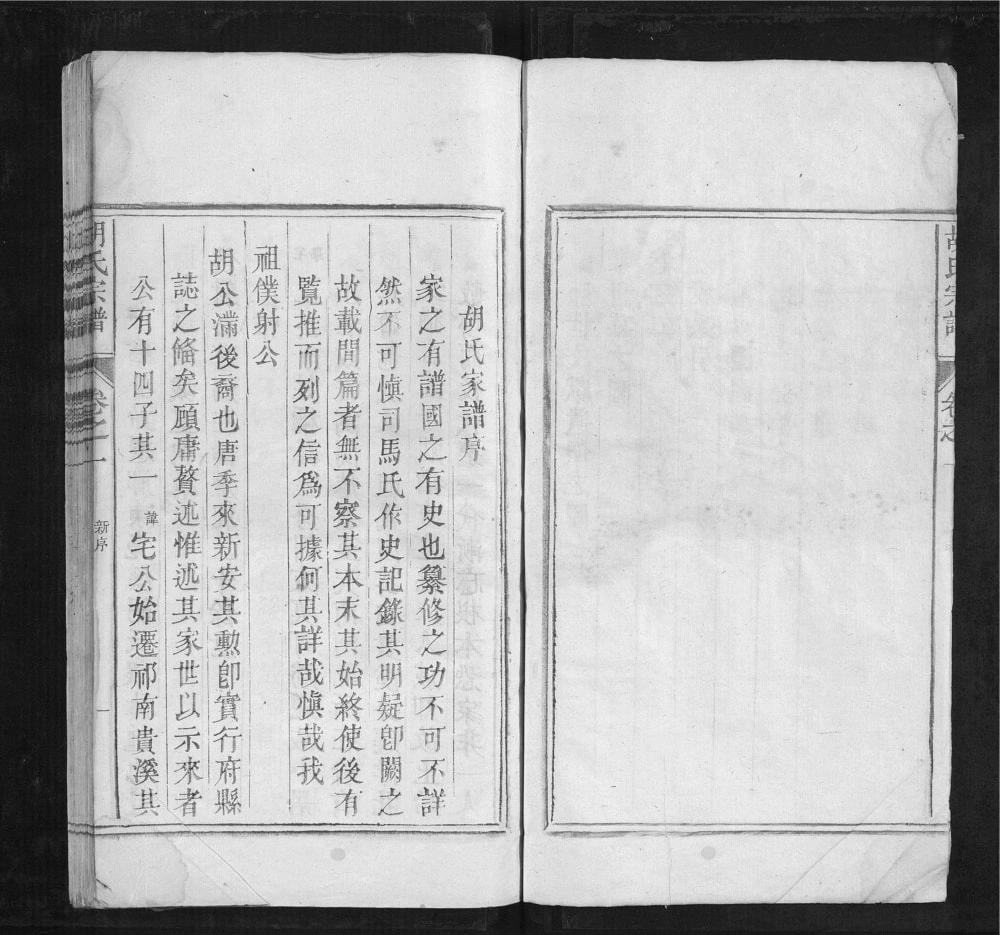 胡氏宗譜
卷之
胡氏家譜序
家之有譜國之有史也纂修之功不可不詳
然不可慎司馬氏作史記錄其明疑卽闕之
故載間篇者無不察其本末其始終使後有
覽推而列之信爲可據何其詳哉慎哉我
祖僕射公
胡公滿後裔也唐季來新安其勲卽實行府縣
誌之俻矣頋庸贅述惟述其家世以示來者
公有十四子其一諱宅公始遷祁南貴溪其
胡氏宗譜
卷之一
新序
一